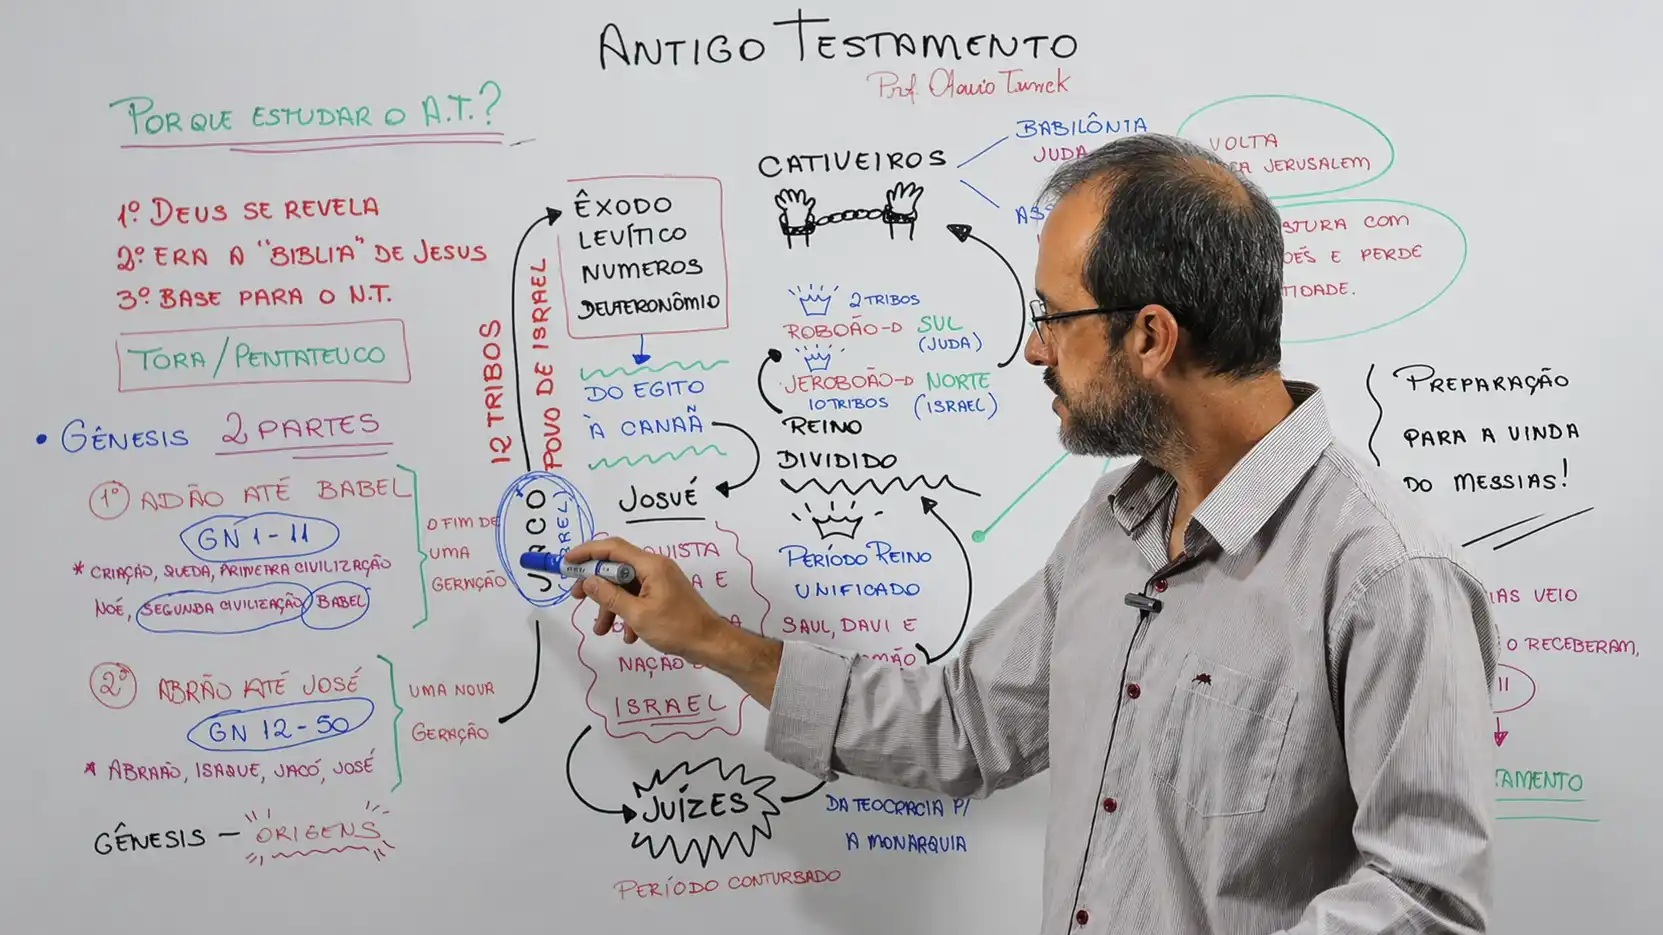 ANTIGO TESTAMENTO
POR QUE ESTUDAR O A.T.?
1º. DEUS SE REVELA
2º ERA A "BIBLIA" DE JESUS
3º. BASE PARA O N.T.
TORA/PENTATEUCO
• GÊNESIS 2 PARTES
1º ADÃO ATÉ BABEL
GN 1-11
* CRIAÇÃO, QUEDA, PRIMEIRA CIVILIZAÇÃO
NOÉ, SEGUNDA CIVILIZAÇÃO, BABEL
O FIM DE
UMA
GERAÇÃO
2º ABRÃO ATÉ JOSÉ
GN 12-50
* ABRAÃO, ISAQUE, JACÓ, JOSÉ
UMA NOVA
GERAÇÃO
GÊNESIS - ORIGENS
12 TRIBOS
POVO DE ISRAEL
ÊXODO
LEVÍTICO
NUMEROS
DEUTERONÔMIO
DO EGITO
À CANAÃ
JOSUÉ
NAÇÃO
ISRAEL
JUÍZES
PERÍODO CONTURBADO
DA TEOCRACIA P/
A MONARQUIA
Prof.
CATIVEIROS
BABILÔNIA
JUDA
VOLTA
JERUSALEM
COM
E PERDE
2 TRIBOS
ROBOÃO- SUL
(JUDA)
JEROBOÃO- NORTE
10 TRIBOS (ISRAEL)
REINO
DIVIDIDO
PERÍODO REINO
UNIFICADO
SAUL, DAVI E
PREPARAÇÃO
PARA A VINDA
DO MESSIAS!
VEIO
O RECEBERAM,